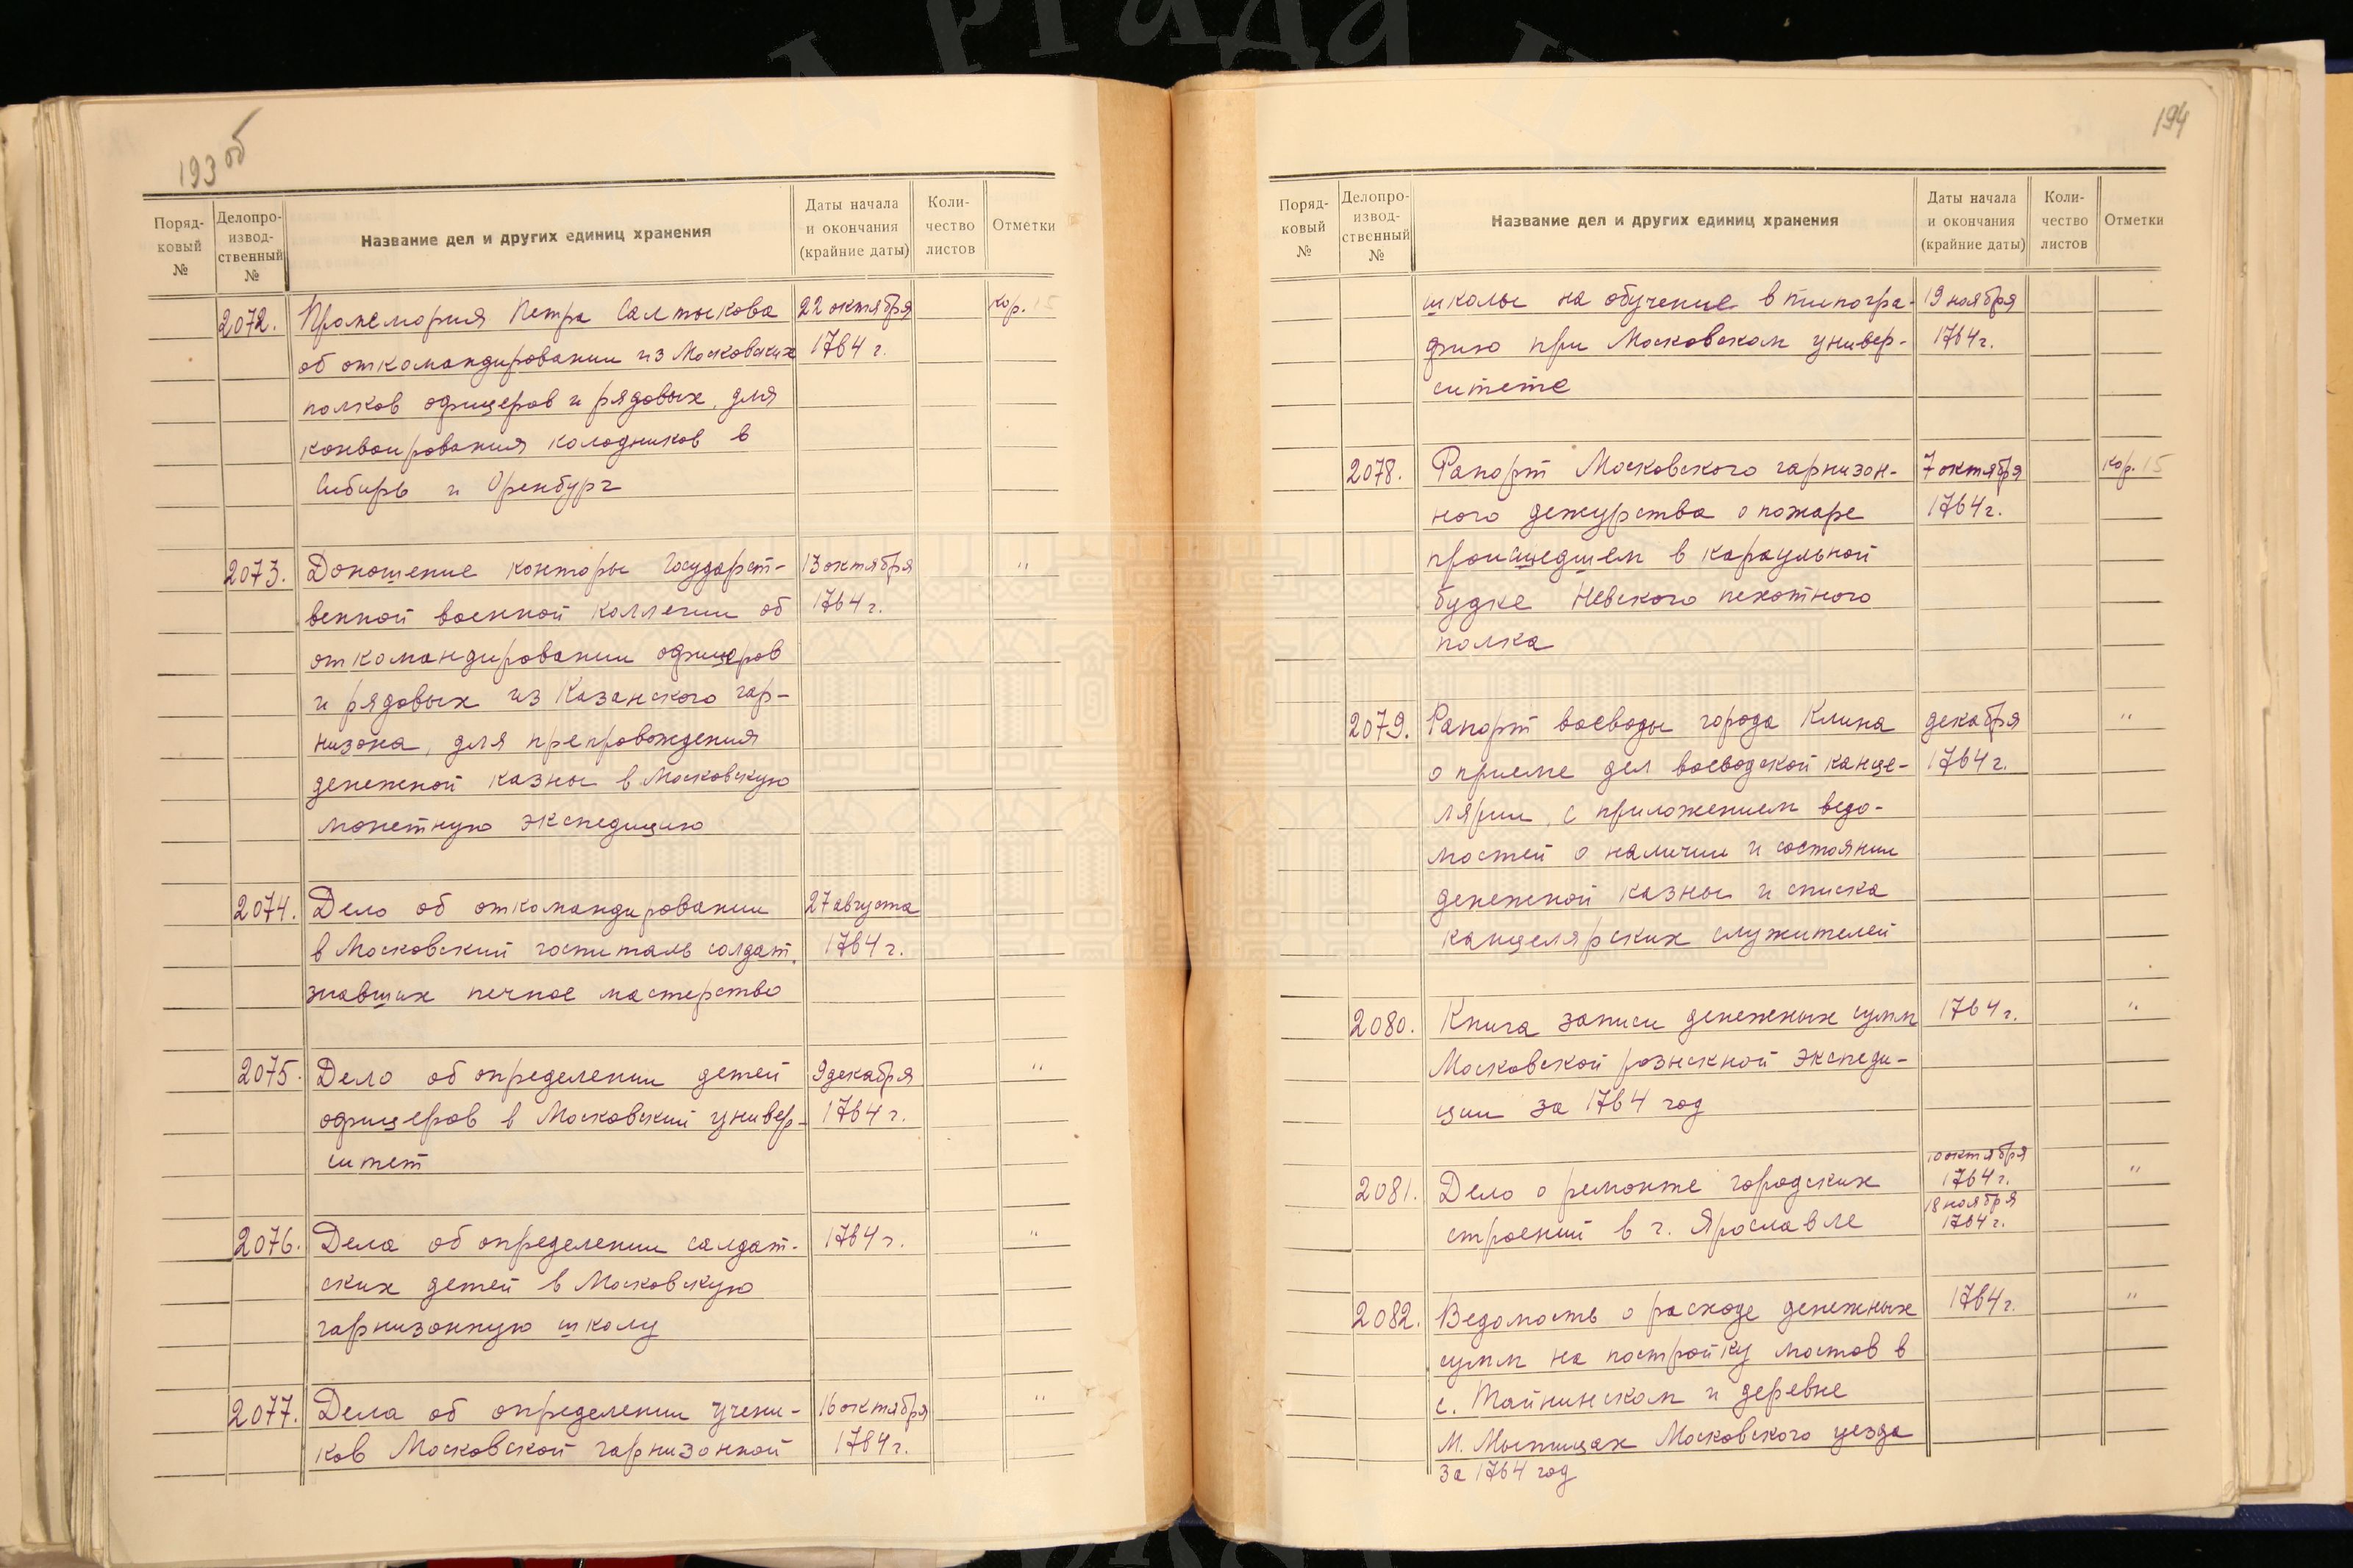 193 об
Поряд-
ковый
№
Делопро-
извод-
ственный
№
Название дел и других единиц хранения
Даты начала
и окончания
(крайние даты)
Коли-
чество
листов
Отметки
2072. Промемория Петра Салтыкова 22 октября кор. 15
об откомандировании из Московских 1764 г.
полков офицеров и рядовых, для
конвоирования колодников в
Сибирь и Оренбург
2073. Доношение конторы Государст- 13 октября "
венной военной коллегии об 1764 г.
откомандировании офицеров
и рядовых из Казанского гар-
низона, для препровождения
денежной казны в Московскую
монетную экспедицию
2074. Дело об откомандировании 27 августа
в Московский госпиталь солдат, 1764 г.
знавших печное мастерство
2075. Дело об определении детей 9 декабря "
офицеров в Московский универ- 1764 г.
ситет
2076. Дела об определении салдат- 1764 г. "
ских детей в Московскую
гарнизонную школу
2077. Дела об определении учени- 16 октября "
ков Московской гарнизонной 1764 г.
194
Поряд-
ковый
№
Делопро-
извод-
ственный
№
Название дел и других единиц хранения
Даты начала
и окончания
(крайние даты)
Коли-
чество
листов
Отметки
школы на обучение в типогра- 19 ноября
фию при Московском универ- 1764 г.
ситете
2078. Рапорт Московского гарнизон- 7 октября кор. 15
ного дежурства о пожаре 1764 г.
происшедшем в караульной
будке Невского пехотного
полка
2079. Рапорт воеводы города Клина декабря "
о приеме дел воеводской канце- 1764 г.
лярии, с приложением ведо-
мостей о наличии и состоянии
денежной казны и списка
канцелярских служителей
2080. Книга записи денежных сумм 1764 г. "
Московской розыскной экспеди-
ции за 1764 год
10 октября
2081. Дело о ремонте городских 1764 г. "
18 ноября
строений в г. Ярославле 1764 г.
2082. Ведомость о расходе денежных 1764 г. "
сумм на постройку мостов в
с. Тайнинском и деревне
М. Мытищах Московского уезда
за 1764 год